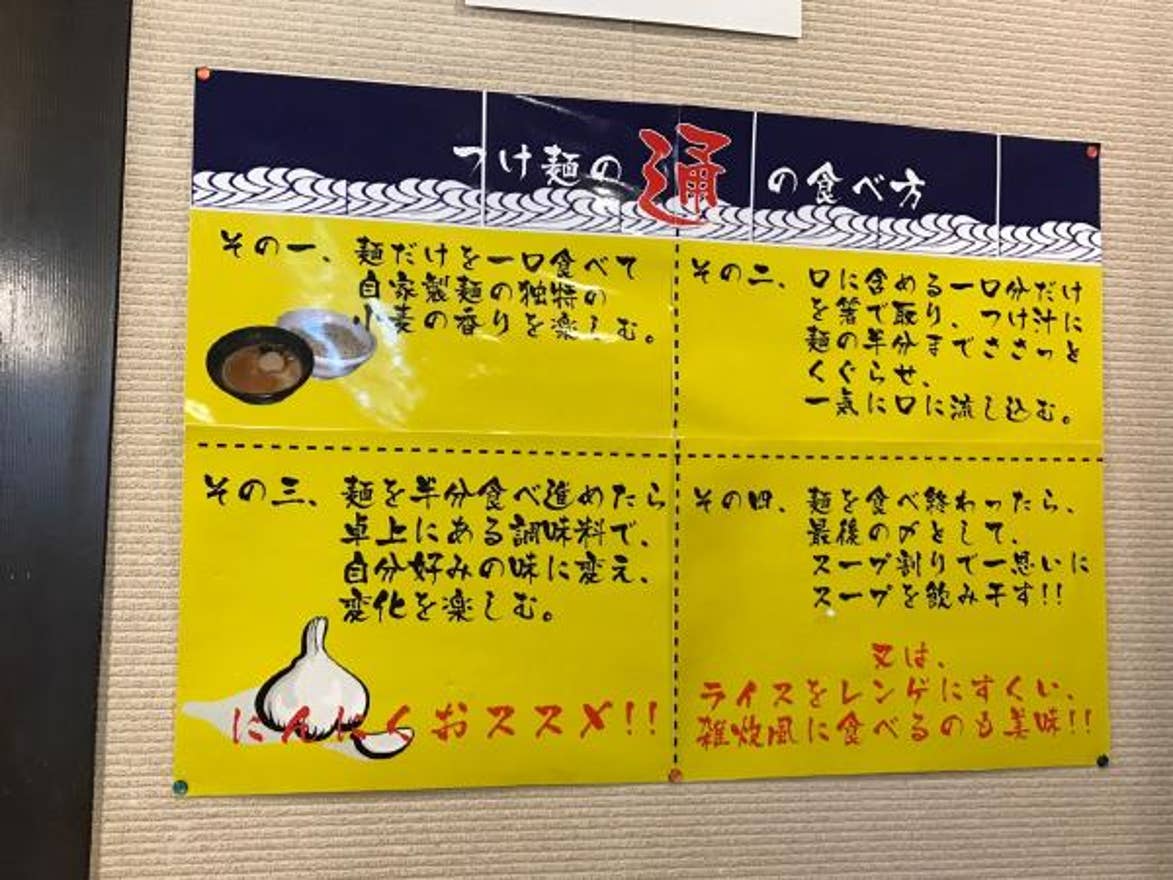 つけ麺の通の食べ方
その一、麺だけを一口食べて
自家製麺の独特の
小麦の香りを楽しむ。
その二、口に含める一口分だけ
を箸で取り、つけ汁に
麺の半分までささっと
くぐらせ、
一気に口に流し込む。
その三、麺を半分食べ進めたら
卓上にある調味料で、
自分好みの味に変え、
変化を楽しむ。
にんにくおススメ!!
その四、麺を食べ終わったら、
最後の〆として、
スープ割りで一思いに
スープを飲み干す!!
又は、
ライスをレンゲにすくい、
雑炊風に食べるのも美味!!